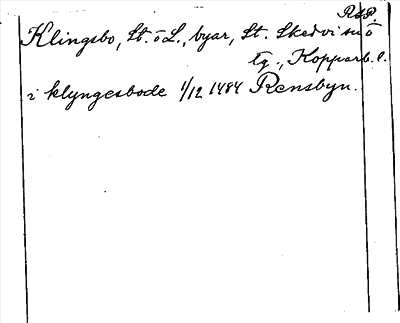 RtP.
Klingsbo, St. o L., byar, St. Skedvi sn o
tg., Kopparb. l.
i klyngesbode 1/12 1484 Rensbyn.